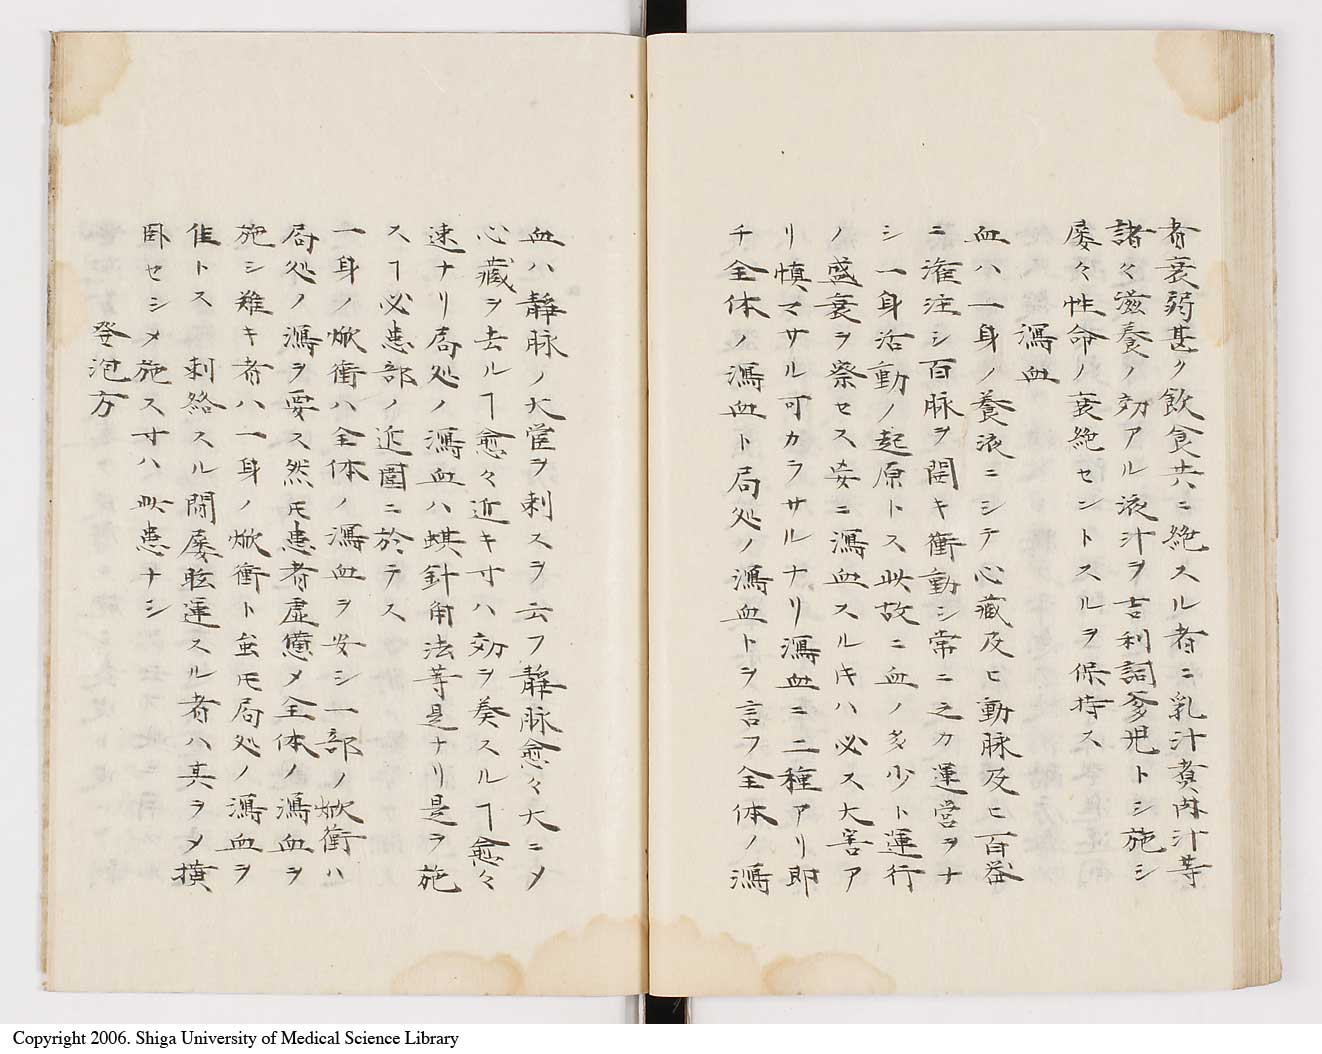 者衰弱甚ク飲食共ニ絶スル者ニ乳汁煮肉汁等
諸々滋養ノ効アル液汁ヲ吉利詞爹児トシ施シ
屡々性命ノ衰絶セントスルヲ保持ス
瀉血
血ハ一身ノ養液ニシテ心藏及ヒ動脉及ヒ百益
ニ潅注シ百脉ヲ開キ衝動シ常ニ之カ運営ヲナ
シ一身活動ノ起原トス此故ニ血ノ多少ト運行
ノ盛衰ヲ察セス妄ニ瀉血スルキハ必ス大害ア
リ慎マサル可カラサルナリ瀉血ニ二種アリ即
チ全体ノ瀉血ト局処ノ瀉血トヲ言フ全体ノ瀉
血ハ静脉ノ大管ヲ刺スヲ云フ静脉愈々大ニメ
心藏ヲ去ルヿ愈々近キ寸ハ効ヲ奏スルヿ愈々
速ナリ局処ノ瀉血ハ蜞針角法等是ナリ是ヲ施
スヿ必患部ノ近圍ニ於テス
一身ノ焮衝ハ全体ノ瀉血ヲ安シ一部ノ焮衝ハ
局処ノ瀉ヲ要ス然モ患者虚憊メ全体ノ瀉血ヲ
施シ難キ者ハ一身ノ焮衝ト虽モ局処ノ瀉血ヲ
佳トス刺絡スル間屡眩運スル者ハ其ヲメ横
臥セシメ施ス寸ハ此患ナシ
発泡方
Copyright 2006. Shiga University of Medical Science Library